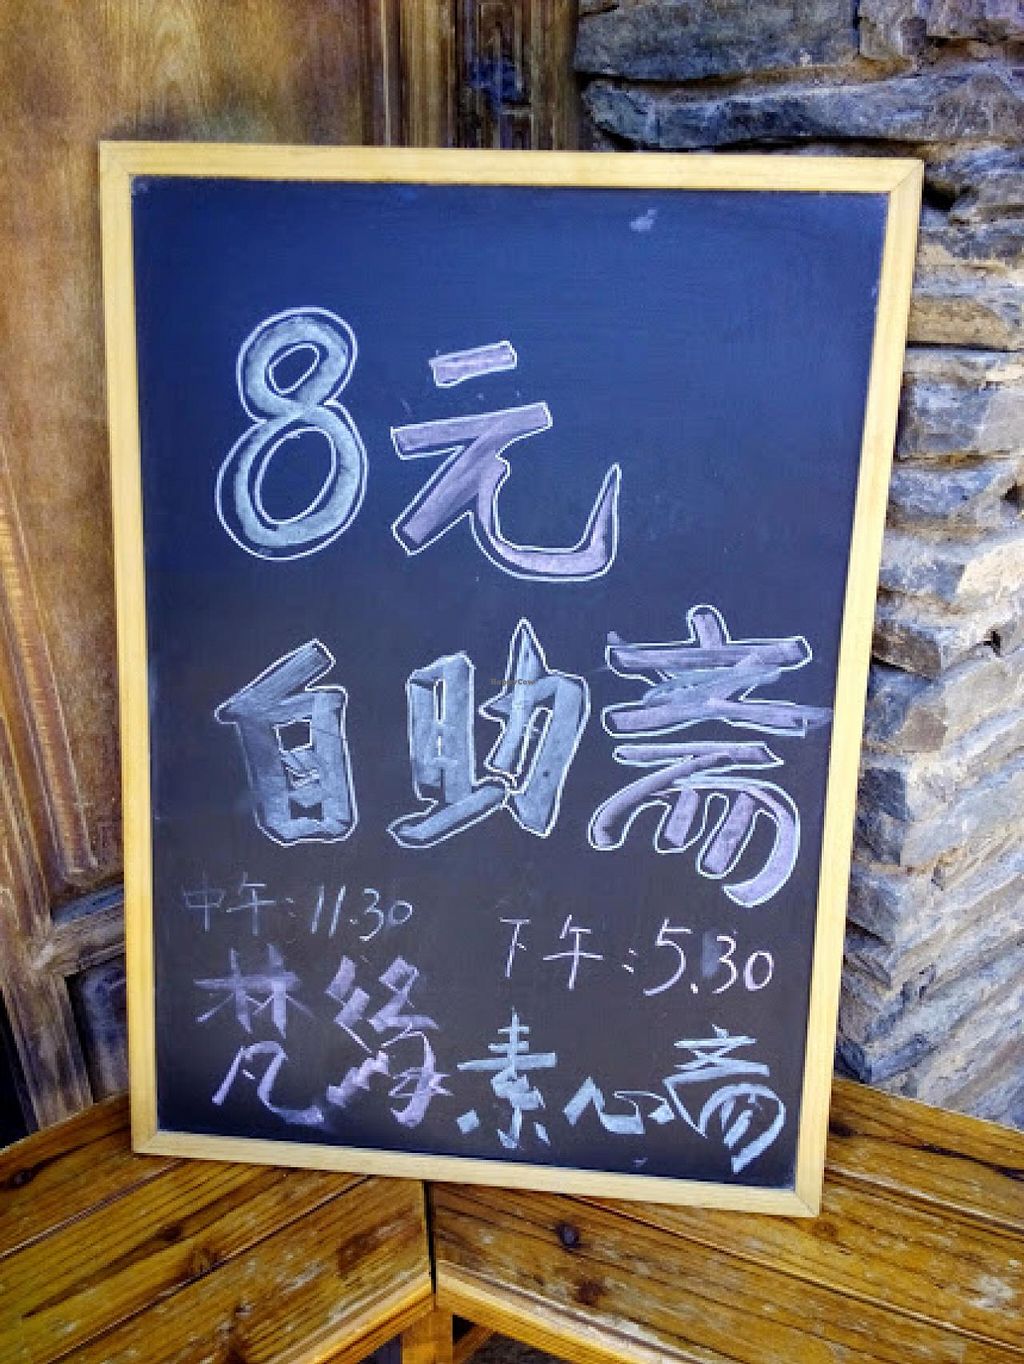 8元
自助斋
中午:11.30
下午:5.30
梵缘素心斋
HappyCow